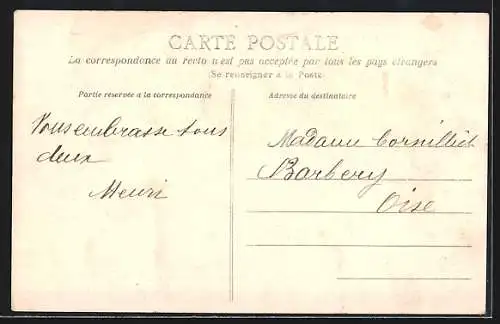 CARTE POSTALE
La correspondance au recto n'est pas acceptée par tous les pays étrangers
(Se renseigner à la Poste)
Partie réservée à la correspondance
Adresse du destinataire
Vous embrasse tous
deux
Henri
Madame Cornilliet
Barbery
Oise